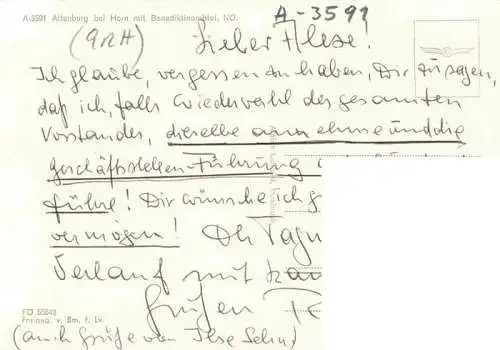 A-3591 Altenburg bei Horn mit Benediktinerabtei, NÖ.
A-3591
(GRH)
Lieber Hese!
Ich glaube, vergessen zu haben, Dir zu sagen,
daß ich, falls Wiederwahl des gesamten
Vorstandes, dieselbe annehme und die
Geschäftsstellen-Führung
führe! Dir wünsche ich
vermögen! Dh Tagu
Verlauf mit
Grüßen
FO 55643
Freimd. v. Bm. f. Lv.
(auch Grüße von Ilse Sehn)